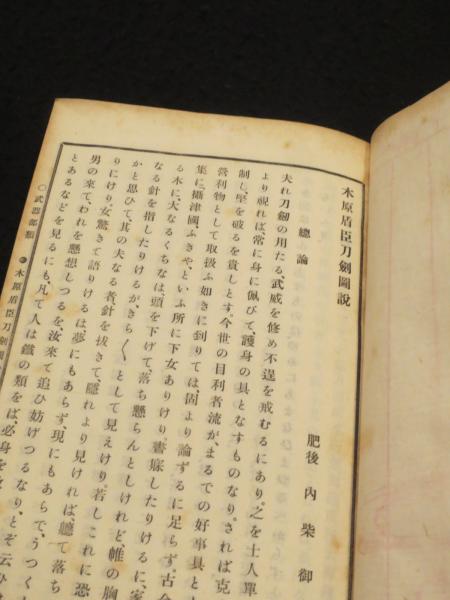 木原盾臣刀劍圖說
肥後 內柴御
總論
夫れ刀劒の用たる、武威を修め不逞を戒むるにあり。之を士人單
より視れば、常に身に佩びて、護身の具となすものなり。されば克
制し、堅を破るを貴しとす。今世の目利者流が、まるでの好事具と
營利物として取扱ふ如きに到りては、固より論ずるに足らず。古今
集に、攝津國、ふきや、といふ所に下女ありけり。晝寐したりけるに、家
る木に、大なるくちなは頭を下げて、落ち懸らんとしけれど、帷の胸
なる針を指したりけるが、きら〱として見えけり。若しこれに恐
かと思ひて、其の夫なる者針を拔きて、隱れより見ければ、軈て落ち
りにけり。女驚きて語りけるは、夢にもあらず、現にもあらで、うつく
男の來て、われを懸想しつるを、汝來て追ひ妨げつるなり、とぞ云ひ
とあるなどを見るにも、凡て人は鐵の類をば、必身を
○武器部類 ●木原盾臣刀劍圖